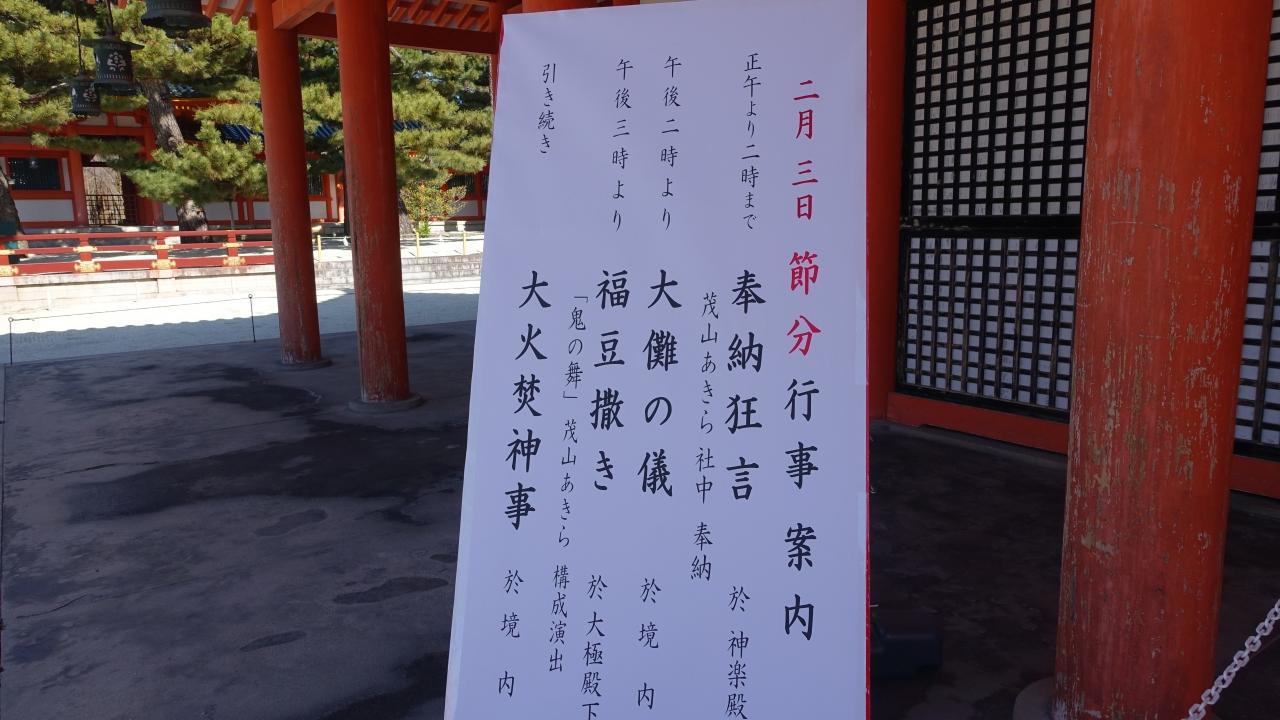 二月三日 節分行事案内
正午より二時まで 奉納狂言 於 神楽殿
茂山あきら 社中 奉納
午後二時より 大儺の儀 於 境 内
午後三時より 福豆撒き 於 大極殿下
「鬼の舞」 茂山あきら 構成演出
引き続き 大火焚神事 於 境 内